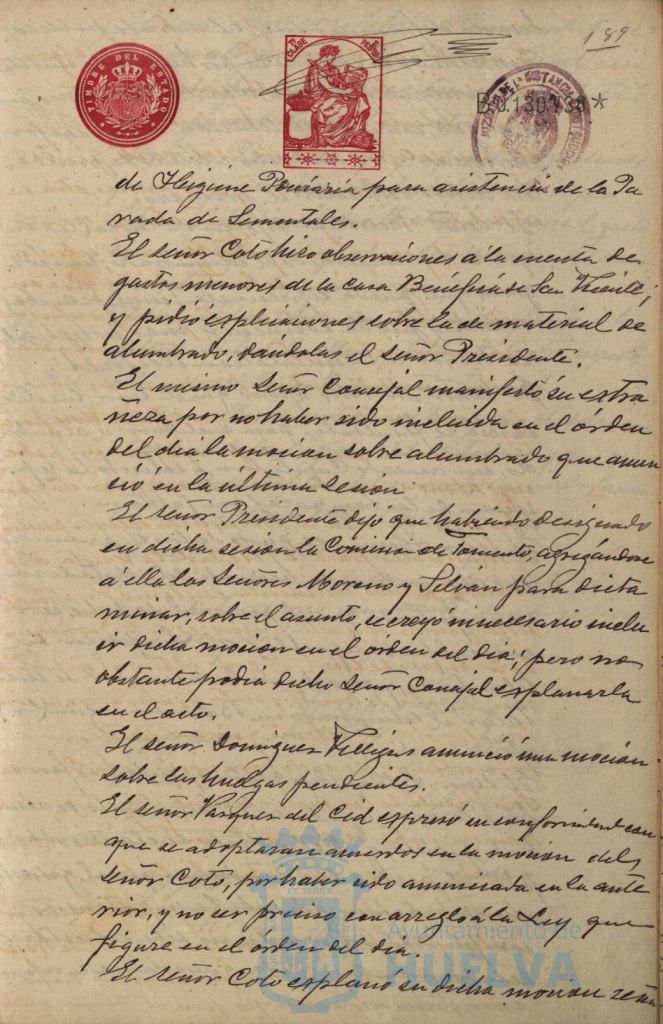 189
TIMBRE DEL ESTADO
CLASE
B0130736*
de Higiene Pecuaria para asistencia de la Pa
rada de Sementales.
El señor Coto hizo observaciones á la cuenta de
gastos menores de la casa Benéfica de San Vicente,
y pidió esplicaciones sobre la de material de
alumbrado, dándolas el señor Presidente.
El mismo Señor Concejal manifestó su extra
ñeza por no haber sido incluida en el órden
del dia la mocion sobre alumbrado que anun
ció en la última sesión
El señor Presidente dijo que habiendo designado
en dicha sesion la Comision de Fomento, agregándose
á ella los Señores Moreno y Silván para dicta
minar, sobre el asunto, se creyó innecesario inclu
ir dicha mocion en el órden del dia; pero no
obstante podia dicho Señor Concejal esplanarla
en el acto.
El señor Dominguez anunció una mocion
sobre las huelgas pendientes.
El señor Vazquez del Cid expresó su conformidad con
que se adoptaran acuerdos en la mocion del
señor Coto, por haber sido anunciada en la ante
rior, y no ser preciso con arreglo á la Ley que
figure en el órden del dia.
El señor Coto esplanó su dicha mocion
Ayuntamiento de
HUELVA